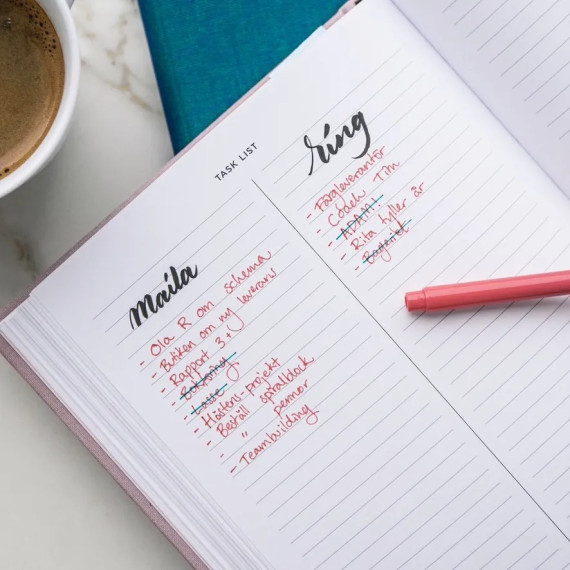 TASK LIST
maila
- Ola R om schema
- Butiken om ny leverans
- Rapport 3+j
- Bokning
- Lasse
- Höstens-projekt
- Beställ spiralblock
- " pennor
- Teambuilding
ring
- Färgleverantör
- Coach Tim
- ADAM!
- Rita fyller år
- Bageriet